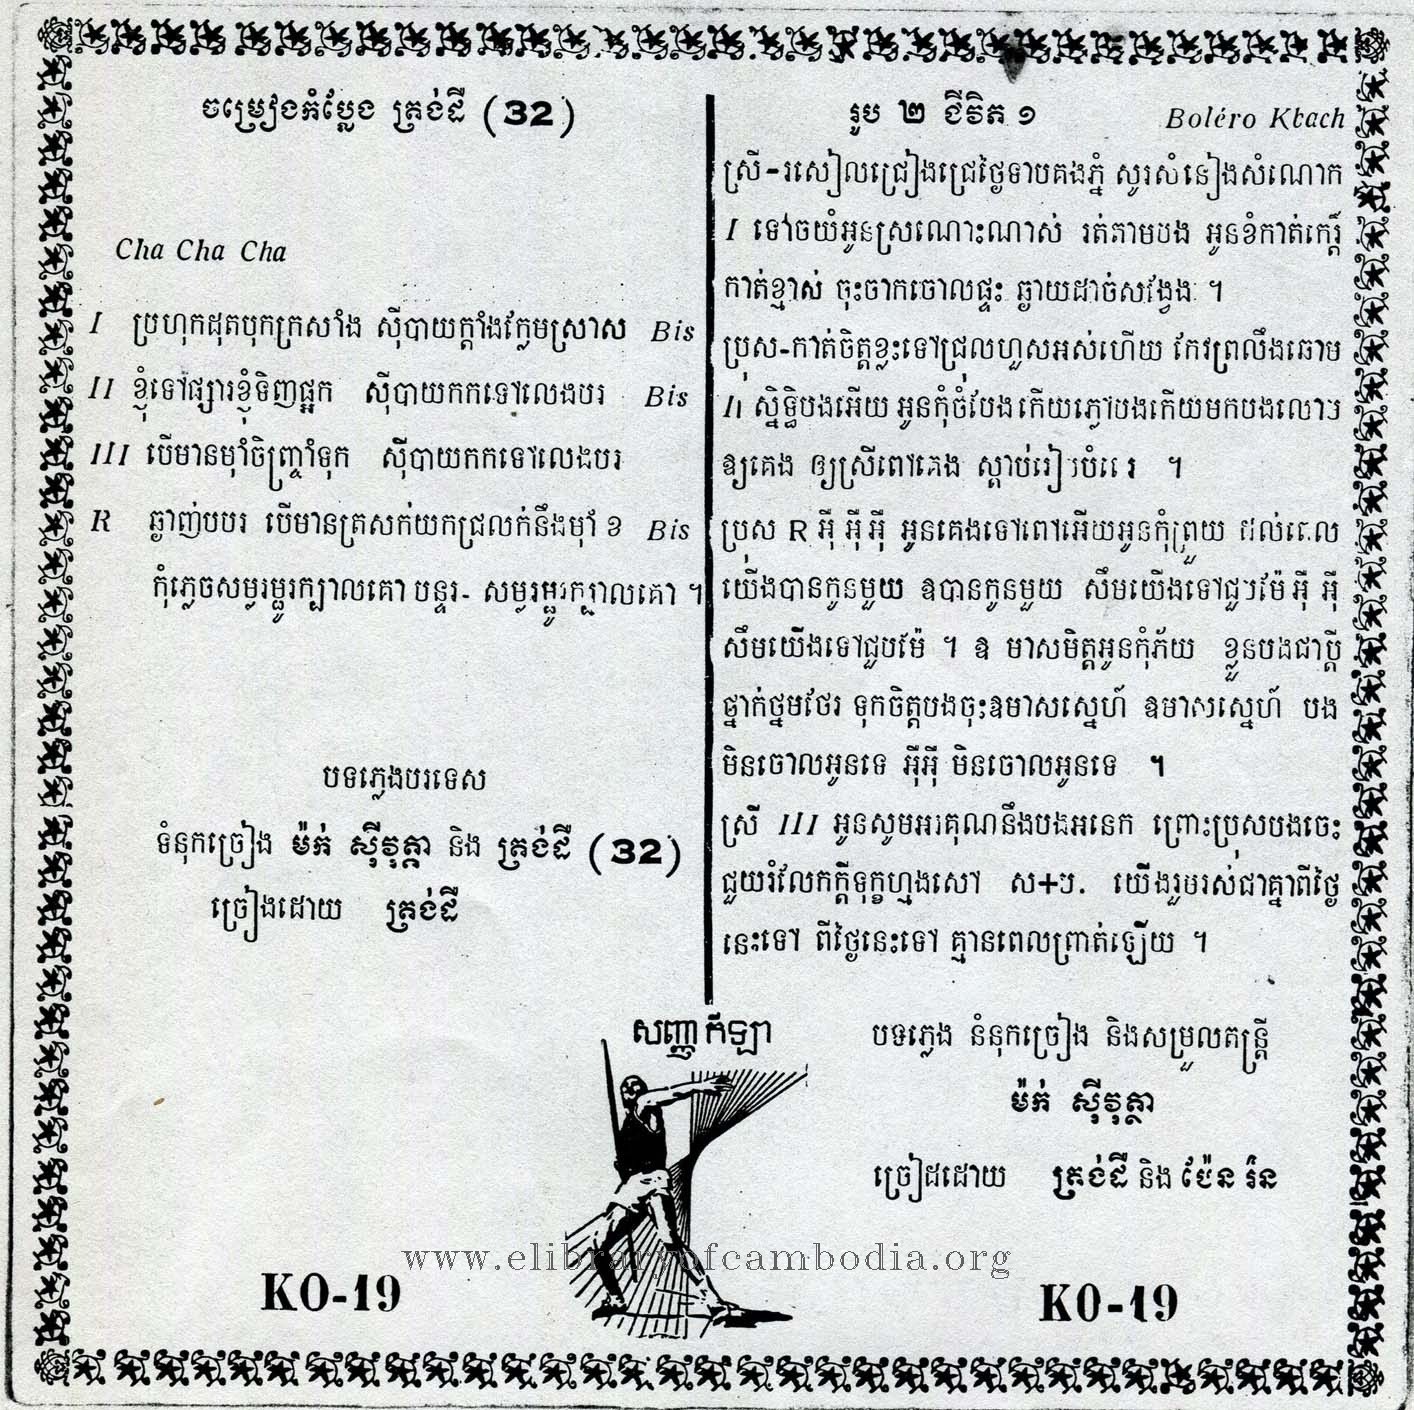 ចម្រៀងកំប្លែង ត្រង់ដឺ (32)
Cha Cha Cha
I ប្រហុកដុតបុកក្រសាំង ស៊ីបាយក្ដាំងក្លែមស្រាស Bis
II ខ្ញុំទៅផ្សារខ្ញុំទិញផ្អក ស៊ីបាយកកទៅលេងបរ Bis
III បើមានម៉ាំចិញ្ច្រាំទុក ស៊ីបាយកកទៅលេងបរ
R ឆ្ងាញ់បបរ បើមានត្រសក់យកជ្រលក់នឹងម៉ាំ ខ Bis
កុំភ្លេចសម្លរម្ជូរក្បាលគោ បន្ទរ- សម្លរម្ជូរក្បាលគោ ។
បទភ្លេងបរទេស
ទំនុកច្រៀង ម៉ក់ ស៊ីវុត្ថា និង ត្រង់ដឺ (32)
ច្រៀងដោយ ត្រង់ដឺ
រូប ២ ជីវិត ១ Boléro Kbach
ស្រី-រសៀលជ្រៀងជ្រេថ្ងៃទាបគងភ្នំ សូរសំនៀងសំណោក
I ទៅចយំអូនស្រណោះណាស់ រត់តាមបង អូនខំកាត់កេរ្តិ៍
កាត់ខ្មាស់ ចុះចាកចោលផ្ទះ ឆ្ងាយដាច់សង្វែង ។
ប្រុស-កាត់ចិត្តខ្លះទៅជ្រុលហួសអស់ហើយ កែវព្រលឹងឆោម
II ស្និទ្ធិបងអើយ អូនកុំចំបែងកើយភ្លៅបងកើយមកបងលោម
ឱ្យគេង ឲ្យស្រីពៅគេង ស្ដាប់រៀប
ប្រុស R អ៊ឺ អ៊ឺ អ៊ឺ អូនគេងទៅពៅអើយអូនកុំព្រួយ ដល់ពេល
យើងបានកូនមួយ ឱបានកូនមួយ សឹមយើងទៅជួបម៉ែ អ៊ឺ អ៊ឺ
សឹមយើងទៅជួបម៉ែ ។ ឱ មាសមិត្តអូនកុំភ័យ ខ្លួនបងជាប្ដី
ថ្នាក់ថ្នមថែរ ទុកចិត្តបងចុះឱមាសស្នេហ៍ ឱមាសស្នេហ៍ បង
មិនចោលអូនទេ អ៊ឺអ៊ឺ មិនចោលអូនទេ ។
ស្រី III អូនសូមអរគុណនឹងបងអនេក ព្រោះប្រុសបងចេះ
ជួយរំលែកក្ដីទុក្ខហ្មងសៅ ស+ប. យើងរួមរស់ជាគ្នាពីថ្ងៃ
នេះទៅ ពីថ្ងៃនេះទៅ គ្មានពេលព្រាត់ឡើយ ។
បទភ្លេង នំនុកច្រៀង និងសម្រួលតន្ត្រី
ម៉ក់ ស៊ីវុត្ថា
ច្រៀងដោយ ត្រង់ដឺ និង ប៉ែន រ៉ន
សញ្ញា កីឡា
www.elibraryofcambodia.org
KO-19
KO-19